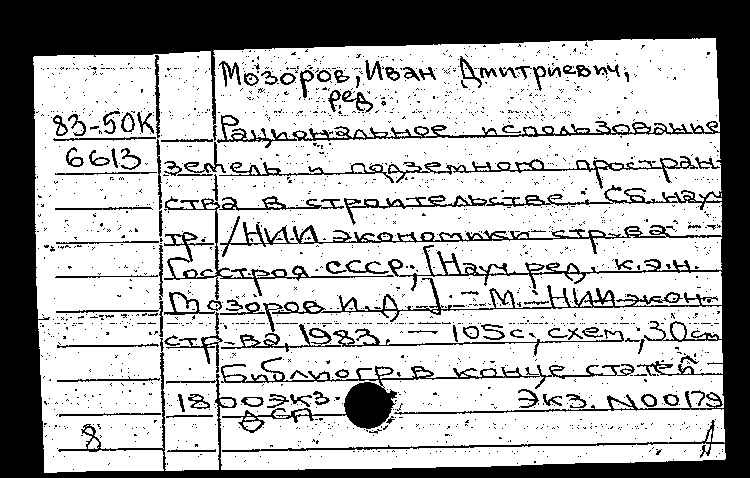 Мозоров, Иван Дмитриевич,
ред.
83-50К Рациональное использование
6613 земель и подземного простран-
ства в строительстве: Сб. науч
тр. / НИИ экономики стр-ва --
Госстроя СССР; [Науч ред. к.э.н.
Мозоров И. Д. ]. - М.: НИИ экон.
стр-ва, 1983. - 105 с; схем.; 30 см
Библиогр. в конце статей
1800экз. Экз. N00179
ДСП.
8 Д